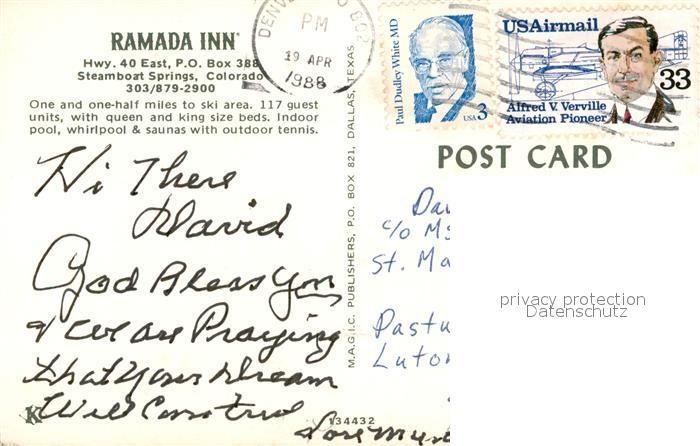 RAMADA INN
Hwy. 40 East, P.O. Box 388
Steamboat Springs, Colorado
303/879-2900
One and one-half miles to ski area. 117 guest
units, with queen and king size beds. Indoor
pool, whirlpool & saunas with outdoor tennis.
Hi There
David
God Bless You
& we are Praying
that your Dream
Will Come true
Love
134432
M.A.G.I.C. PUBLISHERS, P.O. BOX 821, DALLAS, TEXAS
PM
19 APR
1988
Paul Dudley White MD
USA 3
USAirmail
33
Alfred V. Verville
Aviation Pioneer
POST CARD
Da
c/o
St. Ma
Pastu
Luto
privacy protection
Datenschutz
K